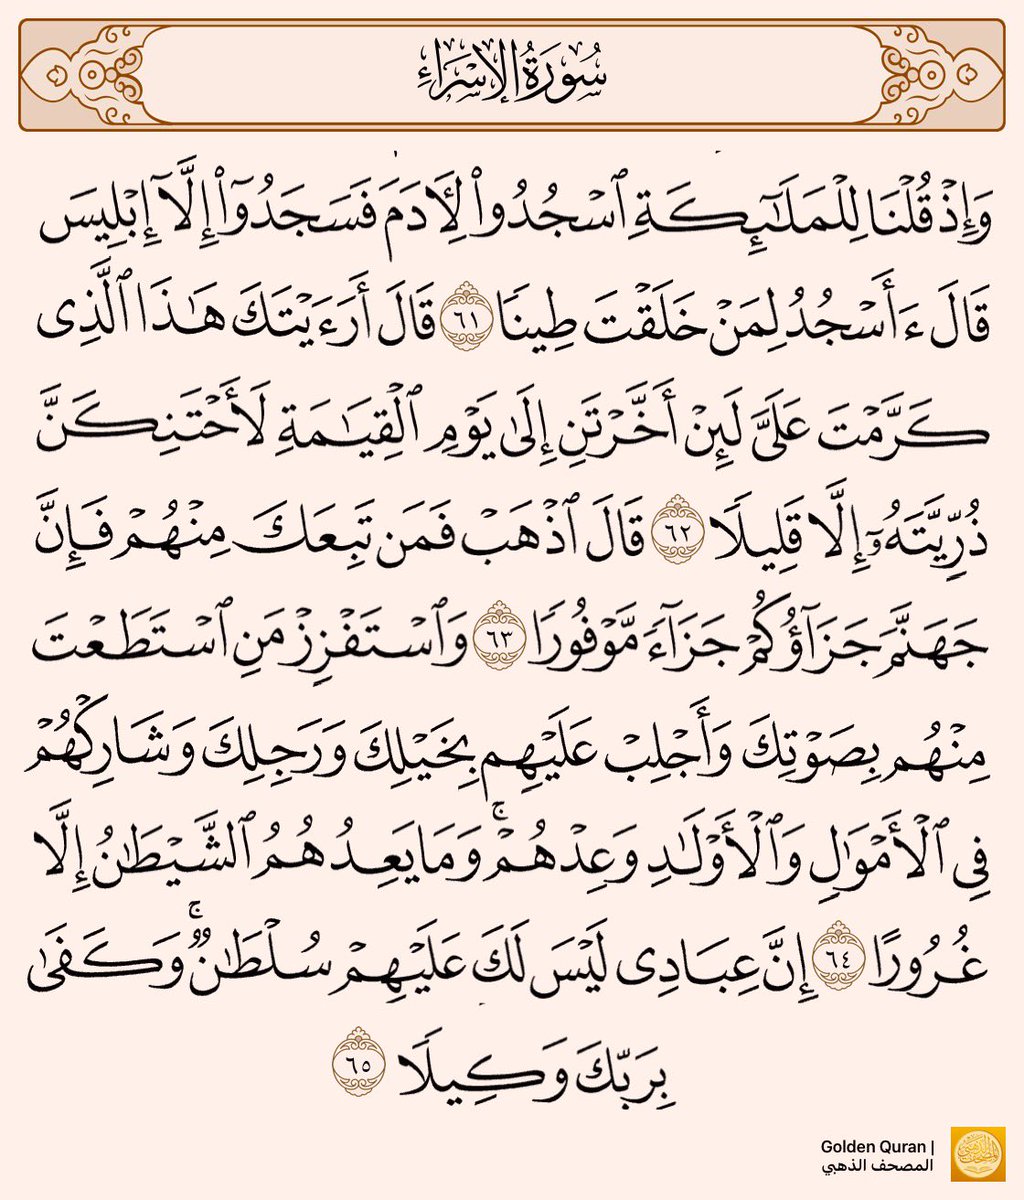 سُورَةُ الإِسْرَاءِ
وَإِذْ قُلْنَا لِلْمَلَٰٓئِكَةِ ٱسْجُدُوا۟ لِـَٔادَمَ فَسَجَدُوٓا۟ إِلَّآ إِبْلِيسَ
قَالَ ءَأَسْجُدُ لِمَنْ خَلَقْتَ طِينًا ٦١ قَالَ أَرَءَيْتَكَ هَٰذَا ٱلَّذِى
كَرَّمْتَ عَلَىَّ لَئِنْ أَخَّرْتَنِ إِلَىٰ يَوْمِ ٱلْقِيَٰمَةِ لَأَحْتَنِكَنَّ
ذُرِّيَّتَهُۥٓ إِلَّا قَلِيلًا ٦٢ قَالَ ٱذْهَبْ فَمَن تَبِعَكَ مِنْهُمْ فَإِنَّ
جَهَنَّمَ جَزَآؤُكُمْ جَزَآءً مَّوْفُورًا ٦٣ وَٱسْتَفْزِزْ مَنِ ٱسْتَطَعْتَ
مِنْهُم بِصَوْتِكَ وَأَجْلِبْ عَلَيْهِم بِخَيْلِكَ وَرَجِلِكَ وَشَارِكْهُمْ
فِى ٱلْأَمْوَٰلِ وَٱلْأَوْلَٰدِ وَعِدْهُمْ ۚ وَمَا يَعِدُهُمُ ٱلشَّيْطَٰنُ إِلَّا
غُرُورًا ٦٤ إِنَّ عِبَادِى لَيْسَ لَكَ عَلَيْهِمْ سُلْطَٰنٌ ۚ وَكَفَىٰ
بِرَبِّكَ وَكِيلًا ٦٥
Golden Quran |
المصحف الذهبي